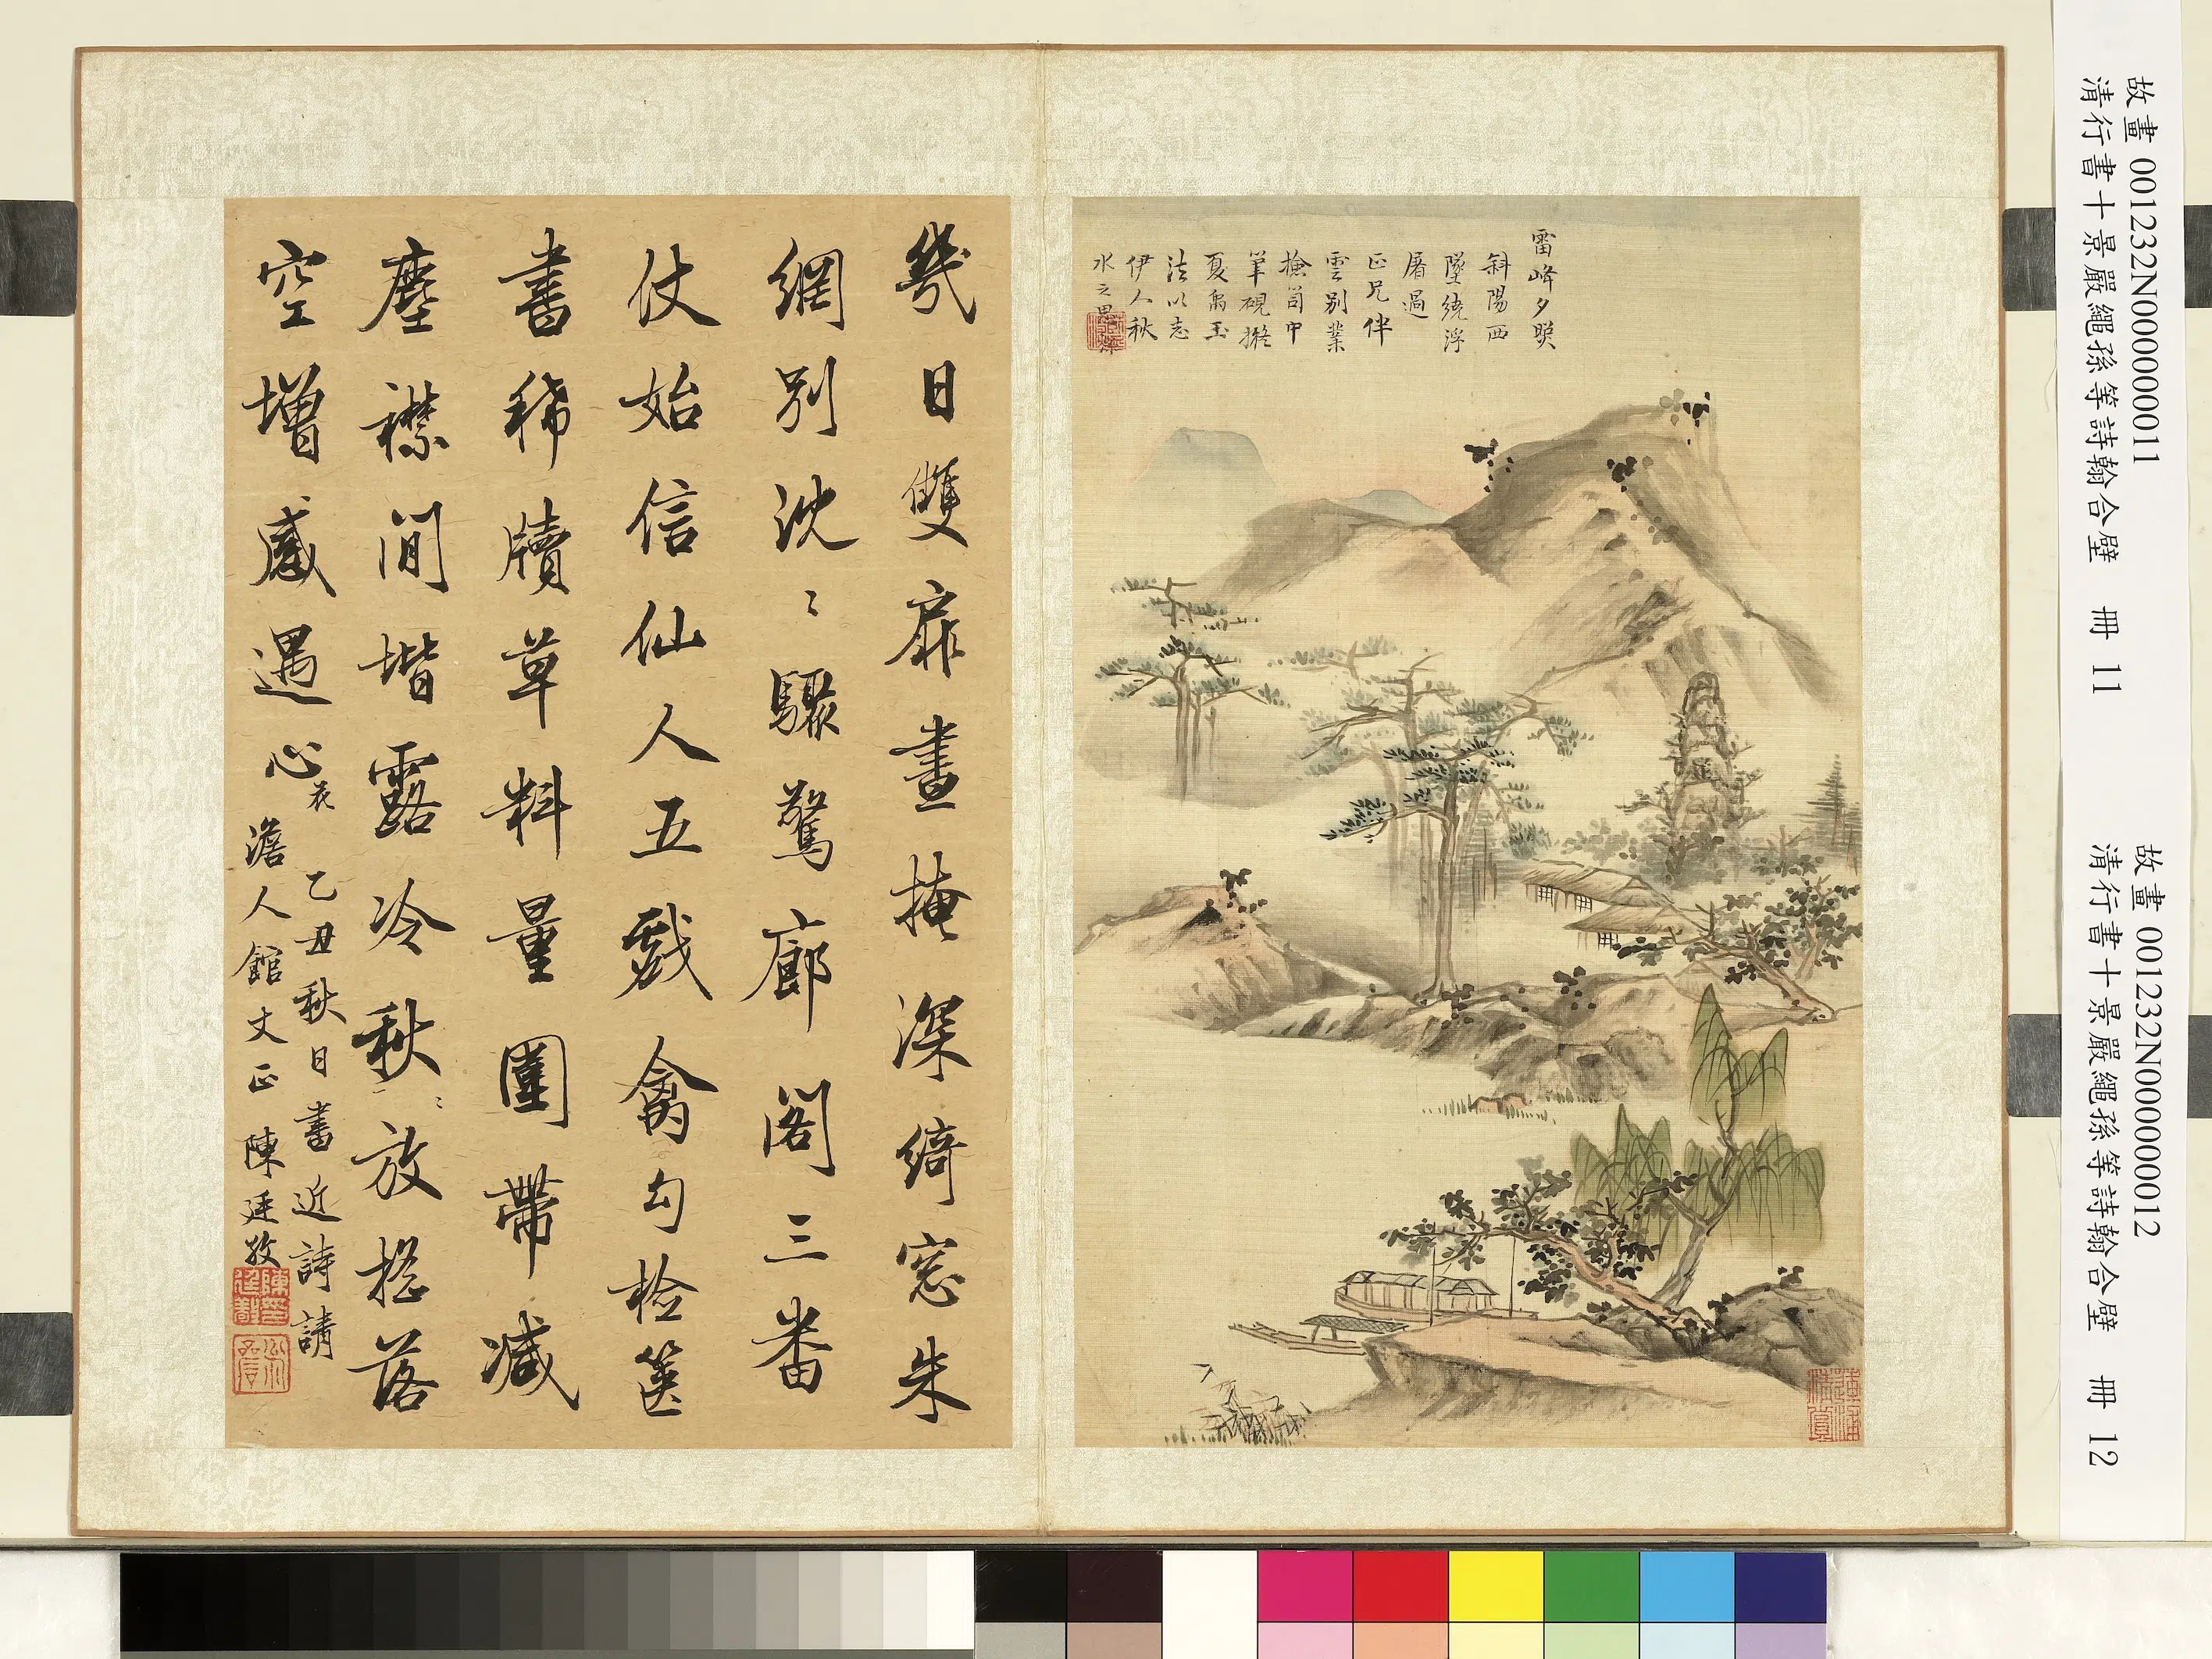 故畫 001232N000000011
清行書十景嚴繩孫等詩翰合璧 冊 11
故畫 001232N000000012
清行書十景嚴繩孫等詩翰合璧 冊 12
雷峰夕照
斜陽西
墜繞浮
屠過
正兄伴
雲別業
撿笥中
筆硯擬
夏禹玉
法以志
伊人秋
水之思
幾日雙扉晝掩深綺窓朱
網別沈〻驟驚廊閣三番
仗始信仙人五戲禽勾檢篋
書稀牘草料量圍帶減
塵襟間堦露冷秋〻放揔落
空增感遇心 花
乙丑秋日書近詩請
澹人館丈正 陳廷敬
陳印廷敬